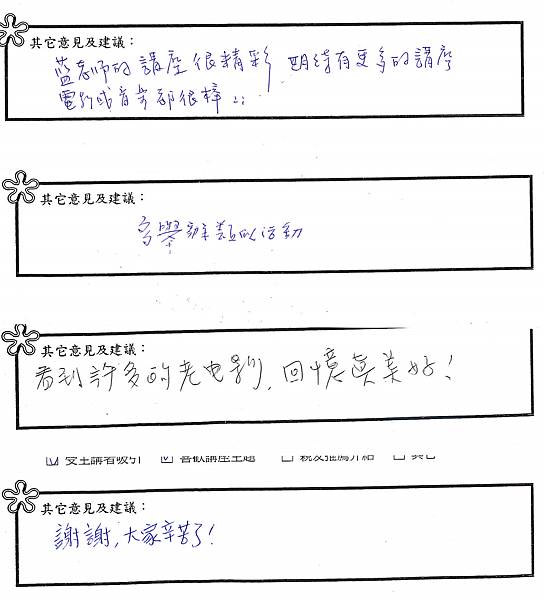 其它意見及建議：
藍老師的講座很精彩 期待有更多的講座
電影或音樂都很棒
其它意見及建議：
多舉辦類似活動
其它意見及建議：
看到許多的老电影，回憶真美好！
受主講者吸引 喜歡講座主題 親友推薦介紹 其它
其它意見及建議：
謝謝，大家辛苦了！